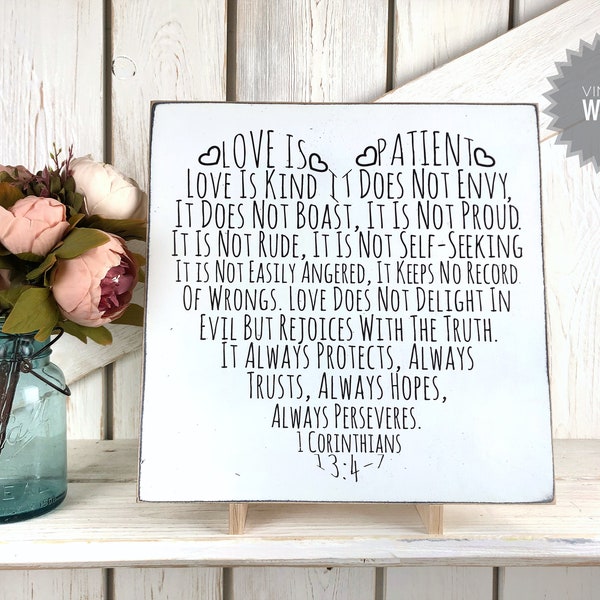 Love Is Patient
Love Is Kind It Does Not Envy,
It Does Not Boast, It Is Not Proud.
It Is Not Rude, It Is Not Self-Seeking
It is Not Easily Angered, It Keeps No Record
Of Wrongs. Love Does Not Delight In
Evil But Rejoices With The Truth.
It Always Protects, Always
Trusts, Always Hopes,
Always Perseveres.
1 Corinthians
13:4-7